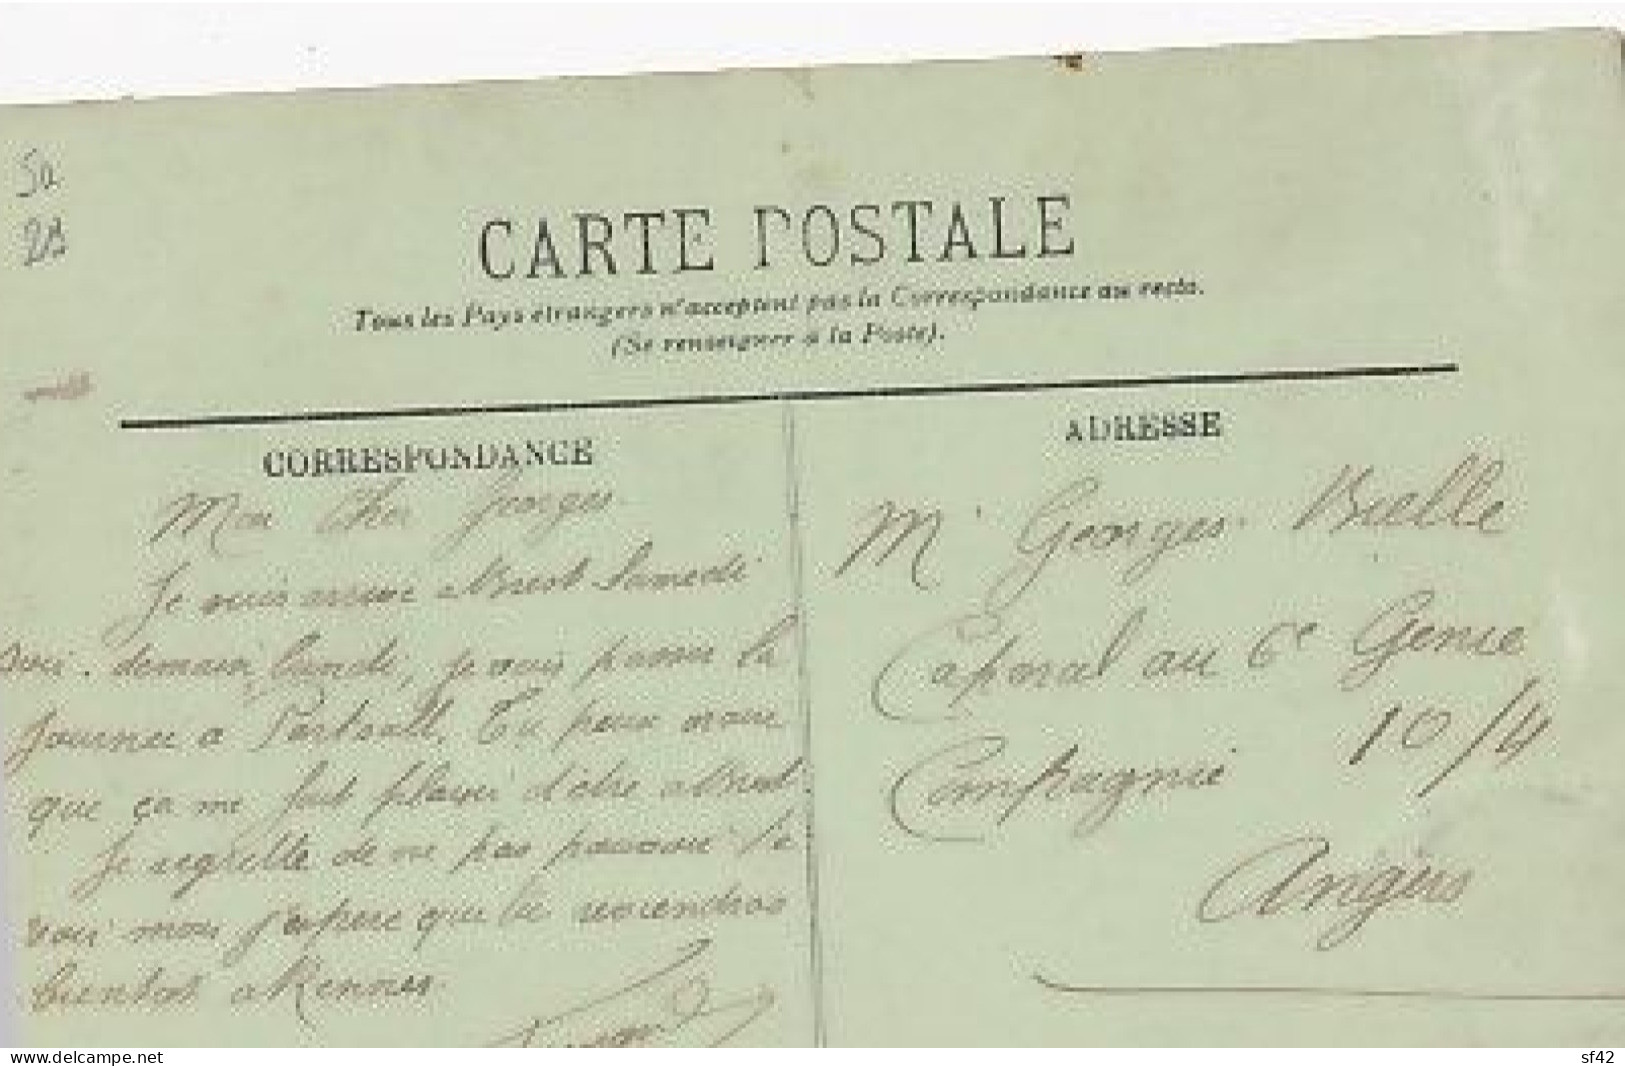 5a
28
CARTE POSTALE
Tous les Pays étrangers n'acceptent pas la Correspondance au recto.
(Se renseigner à la Poste).
CORRESPONDANCE
Mon Cher Georges
Je suis arrivé a Brest Samedi
demain lundi, je vais passer la
journee a Portsall. Tu peux croire
que ça me fait plaisir d'être a Brest.
Je regrette de ne pas pouvoir te
voir mais j'espere que tu reviendras
bientot a Rennes
ADRESSE
Mr Georges
Caporal au 6e Genie
Compagnie 10/4
Angers
www.delcampe.net
sf42